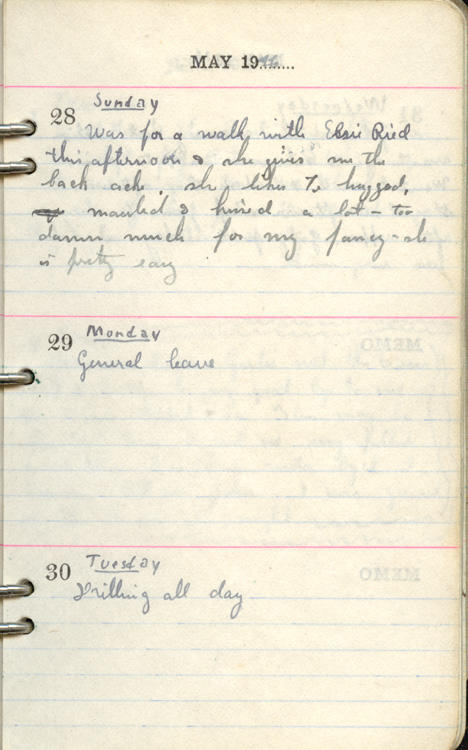 MAY 1916
28 Sunday
Was for a walk with Elsie Ried
this afternoon & she gives me the
back ache, she likes to hugged,
mauled & kissed a lot – too
damn much for my fancy – she
is pretty easy
29 Monday
General leave
30 Tuesday
Drilling all day